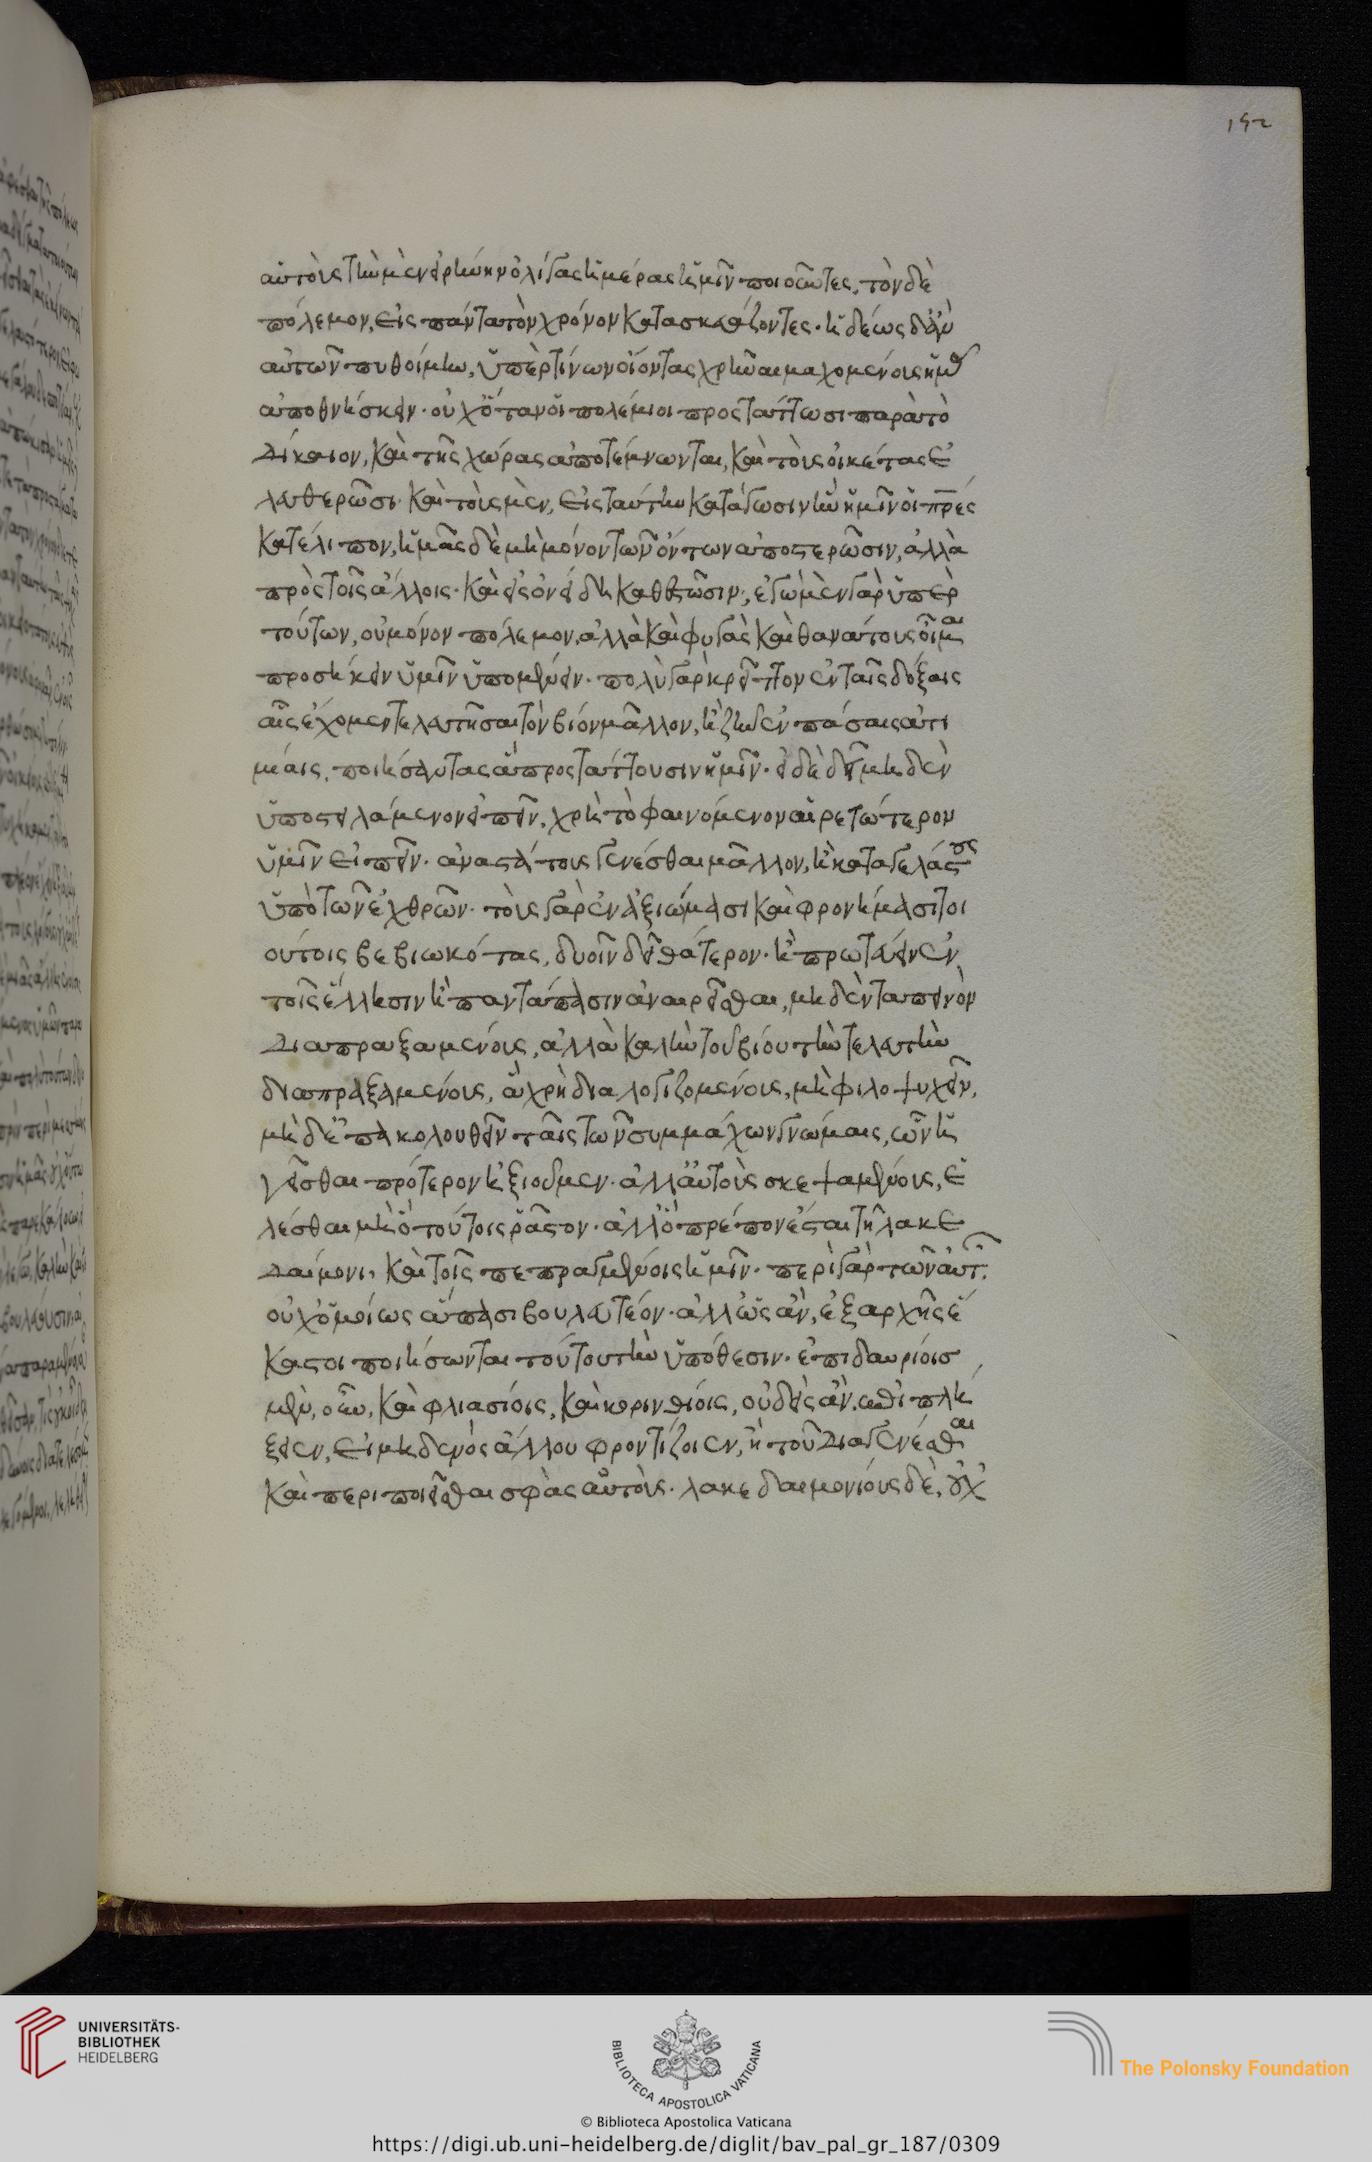 152
αὐτοὺς τὴν μὲν εἰρήνην ὀλίγας ἡμέρας ἡμῖν ποιοῦντες, τὸν δὲ
πόλεμον, εἰς πάντα τὸν χρόνον κατασκευάζοντες. ἡδέως δ' ἂν
αὐτῶν πυθοίμην, ὑπὲρ τίνων οἴονται χρῆναι μαχομένους ἡμᾶς
ἀποθνήσκειν. οὐχ ὅταν οἱ πολέμιοι προστάττωσι παρὰ τὸ
δίκαιον, καὶ τῆς χώρας ἀποτέμνωνται, καὶ τοὺς οἰκέτας ἐ
λευθερῶσι. καὶ τοὺς μὲν, εἰς ταύτην κατάγωσιν ἣν ἡμῖν οἱ πρ̅ές
κατέλιπον, ἡμᾶς δὲ μὴ μόνον τῶν ὄντων ἀποστερῶσιν, ἀλλὰ
πρὸς τοῖς ἄλλοις. καὶ εἰς ὀνείδη καθιστῶσιν, ἐγὼ μὲν γὰρ ὑπὲρ
τούτων, οὐ μόνον πόλεμον, ἀλλὰ καὶ φυγὰς καὶ θανάτους οἶμαι
προσήκειν ὑμῖν ὑπομένειν. πολὺ γὰρ κρεῖττον ἐν ταῖς δόξαις
αἷς ἔχομεν τελευτῆσαι τὸν βίον μᾶλλον, ἢ ζῆν ἐν πάσαις ἀτι
μίαις, ποιήσαντας ἃ προστάττουσιν ἡμῖν. εἰ δὲ δεῖ μηδὲν
ὑποστειλάμενον εἰπεῖν, χρὴ τὸ φαινόμενον αἱρετώτερον
ὑμῖν εἰπεῖν. ἀναστάτοις γενέσθαι μᾶλλον, ἢ καταγελάστοις
ὑπὸ τῶν ἐχθρῶν. τοὺς γὰρ ἐν ἀξιώμασι καὶ φρονήμασι τοι
ούτοις βεβιωκότας, δυοῖν δεῖ θάτερον. ἢ πρωτεύειν ἐν
τοῖς ἕλλησιν ἢ παντάπασιν ἀναιρεῖσθαι, μηδὲν ταπεινὸν
διαπραξαμένους, ἀλλὰ καλὴν τοῦ βίου τὴν τελευτὴν
διαπραξαμένους, ἃ χρὴ διαλογιζομένους, μὴ φιλοψυχεῖν,
μὴ δ' ἐπακολουθεῖν ταῖς τῶν συμμάχων γνώμαις, ὧν ἡ
γεῖσθαι πρότερον ἠξιοῦμεν. ἀλλ' αὐτοὺς σκεψαμένους, ἑ
λέσθαι μὴ ὃ τούτοις ῥᾷστον. ἀλλ' ὃ πρέπον ἔσται τῇ λακε
δαίμονι, καὶ τοῖς πεπραγμένοις ἡμῖν. περὶ γὰρ τῶν αὐτῶν
οὐχ ὁμοίως ἅπασι βουλευτέον. ἀλλ' ὡς ἂν, ἐξ ἀρχῆς ἕ
καστοι ποιήσωνται τούτου τὴν ὑπόθεσιν. ἐπιδαυρίοις
μὲν, οὖν, καὶ φλιασίοις, καὶ κορινθίοις, οὐδεὶς ἂν, ἐπιπλή
ξειεν, εἰ μηδενὸς ἄλλου φροντίζοιεν, ἢ τοῦ διαγενέσθαι
καὶ περιποιεῖσθαι σφᾶς αὐτούς. λακεδαιμονίους δὲ, οὐχ
UNIVERSITÄTS-
BIBLIOTHEK
HEIDELBERG
BIBLIOTECA APOSTOLICA VATICANA
The Polonsky Foundation
© Biblioteca Apostolica Vaticana
https://digi.ub.uni-heidelberg.de/diglit/bav_pal_gr_187/0309